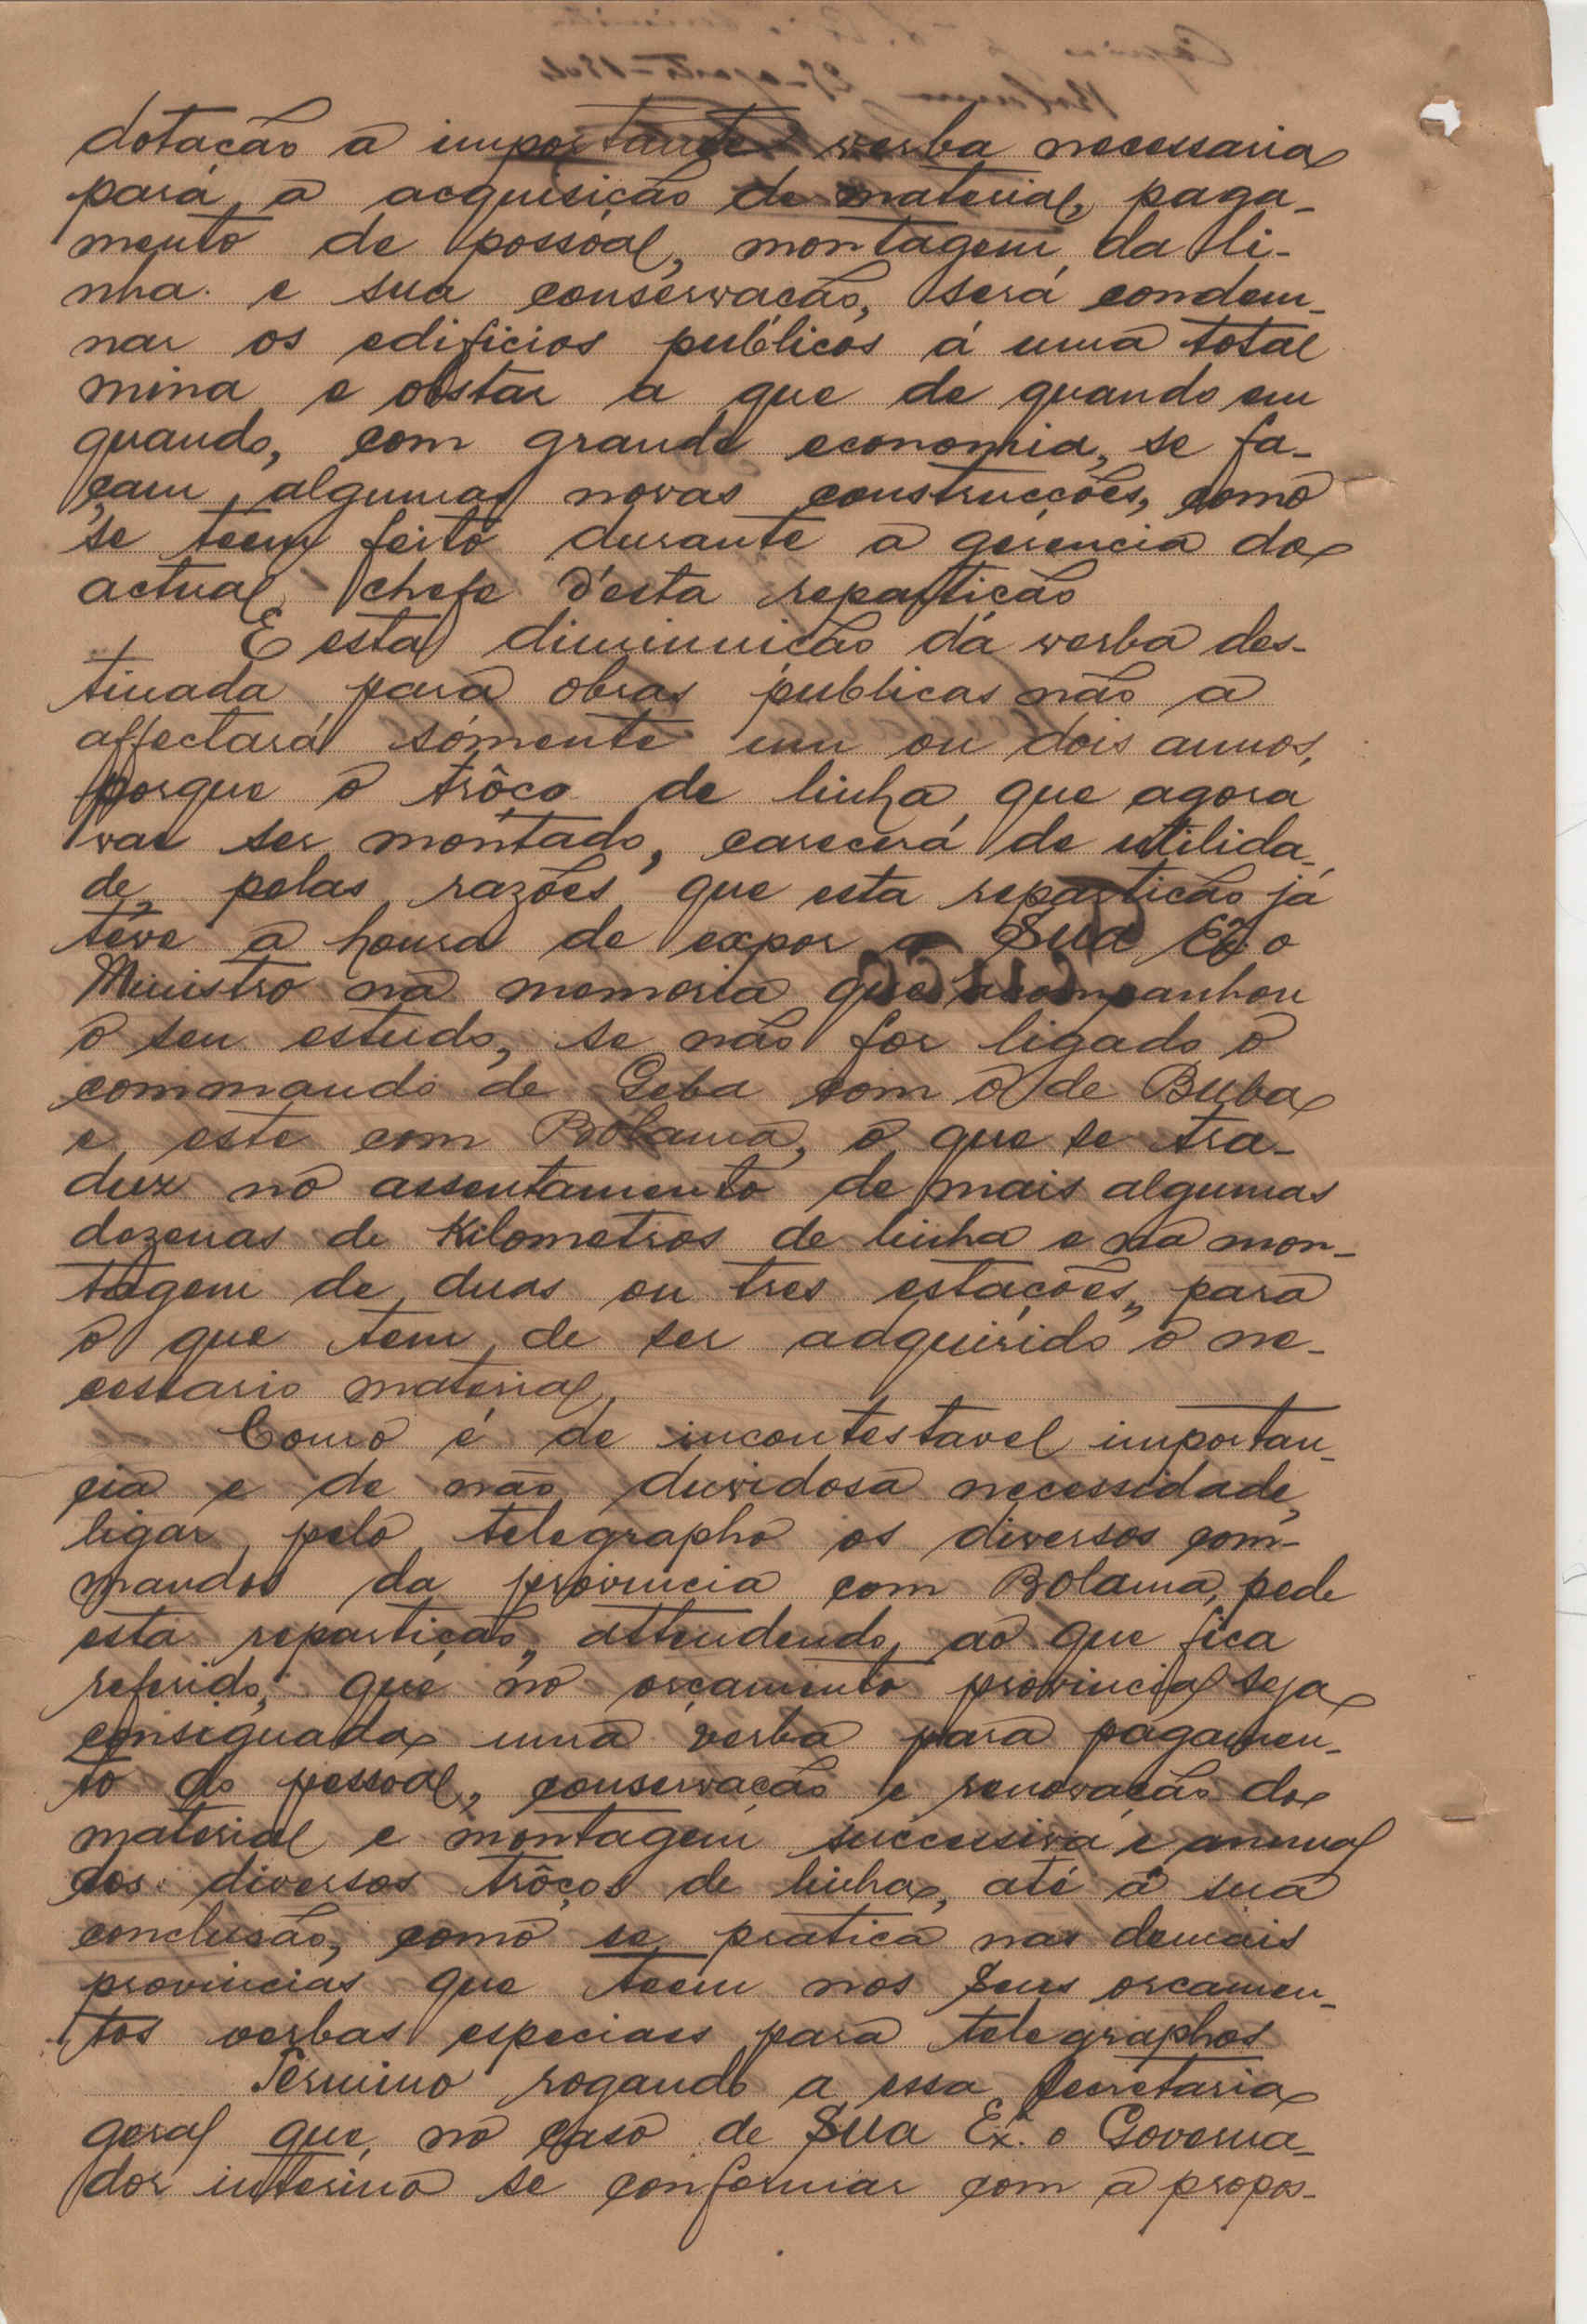 dotação a importante verba necessaria
pará a acquisição de material, paga-
mento de possoal, montagem da li-
nha e sua conservação, será condem-
nar os edificios publicos á uma total
ruina e obstar a que de quando em
quando, com grande economia, se fa-
çam algumas novas construcções, como
se teem feito durante a gerencia do
actual chefe d'esta repartição
E esta diminuição da verba des-
tinada para obras publicas não a
affectará sómente um ou dois annos,
porque o trôço de linha que agora
vae ser montado, carecerá de utilida-
de, pelas razões que esta repartição já
teve a honra de expor a Sua Exª o
Ministro na memoria que acompanhou
o seu estudo, se não for ligado o
commando de Geba com o de Buba
e este com Bolama, o que se tra-
duz no assentamento de mais algumas
dezenas de Kilometros de linha e na mon-
tagem de duas ou tres estações, para
o que tem de ser adquirido o ne-
cessario material.
Como é de incontestavel importan-
cia e de não duvidosa necessidade,
ligar pelo telegrapho os diversos com-
mandos da provincia com Bolama, pede
esta repartição, attendendo ao que fica
referido, que no orçamento provincial seja
consignada uma verba para pagamen-
to do pessoal, conservação e renovação do
material e montagem successiva e annual
dos diversos trôços de linha, até á sua
conclusão, como se pratica nas demais
provincias que teem nos seus orcamen-
tos verbas especiaes para telegraphos
Termino rogando a essa secretaria
geral que, no caso de Sua Exª o Governa-
dor interino se conformar com a propos-